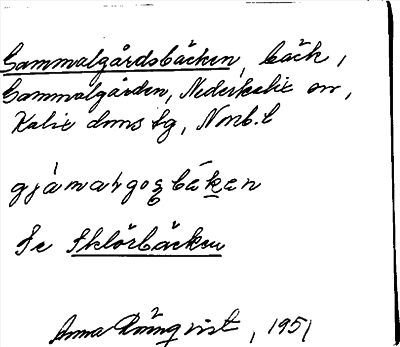 Gammalgårdsbäcken, bäck,
Gammalgården, Nederkalix sn,
Kalix dms tg, Norrb.l
Se Sklörbäcken
Anna Rönnqvist, 1951